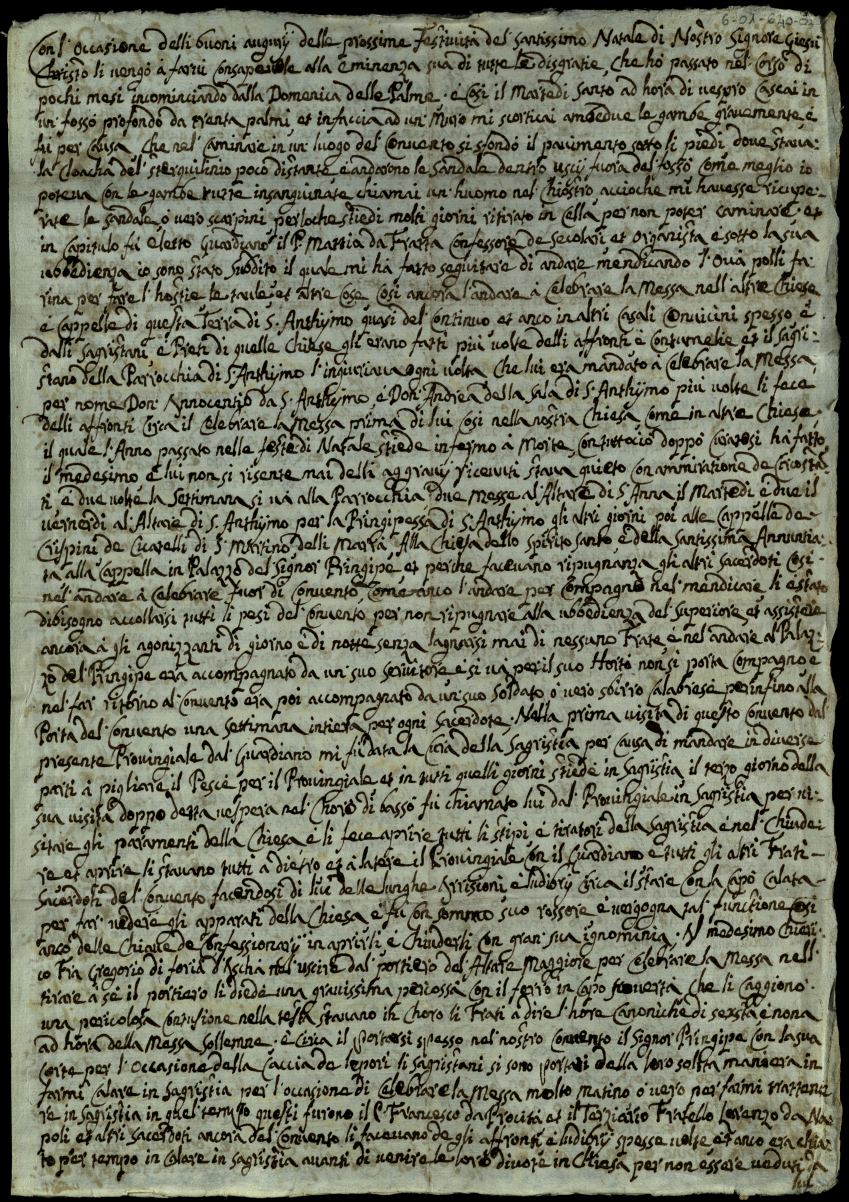 6-01-640-02
Con l'occasione delli buoni augurij delle prossime Festività del Santissimo Natale di Nostro Signore Giesù
Christo li vengo à farui consapeuole alla eminenza sua di tutte le disgratie, che ho passato nel corso di
pochi mesi incominciando dalla Domenica delle Palme. e così il Martedi Santo ad hora di vespro cascai in
un fosso profondo da trenta palmi, et in faccia ad un Muro mi scorticai ambedue le gambe gravemente è
fù per causa, che nel caminare in un luogo del Convento si sfondò il pavimento sotto li piedi dove stava
la cloacha del sterquilinio poco distante è andorono le sandale dentro uscij fuora del fosso come meglio io
poteva con le gambe tutte insanguinate chiamai un huomo nel Chiostro accioche mi havesse ricupe-
rate le sandale ò vero scarpini perloche stiedi molti giorni ritirato in cella per non poter caminare. et
in Capitulo fù eletto Guardiano il P. Mattia da Fratta Confessore de Secolari et Organista e sotto la sua
ubbedienza io sono stato subdito il quale mi hà fatto seguitare di andare mendicando l'Ova polli fa-
rina per fare l'hostie le tavle et altre cose così ancora l'andare à Celebrare la Messa nell'altre Chiese
e Cappelle di questa Terra di S. Anthijmo quasi del continuo et anco in altri Casali convicini spesso è
dalli Sagristani è Preti di quelle Chiese gli erano fatti più volte delli affronti è contumelie et il Sagri-
stano della Parrocchia di S. Anthijmo l'ingiuriava ogni volta che lui era mandato à Celebrare la Messa,
per nome Don Annocentio da S. Anthijmo, è Don Andrea della Sala di S. Anthijmo più volte li fece
delli affronti circa il Celebrare la Messa prima di lui così nella nostra Chiesa come in altre Chiese
il quale l'Anno passato nelle feste di Natale stiede infermo à Morte, con tuttociò doppo curatosi hà fatto
il medesimo è lui non si risente mai delli aggravij ricevuti stava quieto con ammiratione de circostan-
ti, è due volte la Settimana si và alla Parrocchia due Messe al Altare di S. Anna il Martedi è due il
vernerdi al Altare di S. Anthijmo per la Principessa di S. Anthijmo gli altri giorni poi alle Cappelle de
Crispini de Cicatelli di S. Martino delli Marra, Alla Chiesa dello Spirito Santo è della Santissima Annuntia-
ta alla Cappella in Palazzo del Signor Principe et perche facevano ripugnanza gli altri Sacerdoti così
nel andare à celebrare fuor di Convento, come anco l'andare per Compagno nel mendicare li è stato
dibisogno accollarsi tutti li pesi del Convento per non ripugnare alla ubbedienza del Superiore, et assistere
ancora à gli agonizzanti di giorno è di notte senza lagnarsi mai di nessuno Frate, è nel andare al Palaz-
zo del Principe era accompagnato da un suo servitore è si và per il suo Horto non si porta Compagno è
nel far ritorno al Convento era poi accompagnato da un suo Soldato ò vero sbirro Calabrese perinfino alla
Porta del Convento una Settimana intiera per ogni Sacerdote. Nella prima visita di questo Convento dal
presente Provinciale dal Guardiano mi fù data la cura della Sagristia per causa di mandare in diverse
parti à pigliare il Pesce per il Provinciale et in tutti quelli giorni stiede in Sagristia il terzo giorno della
sua visita doppo detta vespera nel Choro di basso fù chiamato lui dal Provinciale in Sagristia per vi-
sitare gli paramenti della Chiesa è li fece aprire tutti li stipi è tiratori della Sagristia è nel Chiude-
re et aprire li stavano tutti à dietro et à latere il Provinciale con il Guardiano è tutti gli altri Frati
Sacerdoti del Convento facendosi di lui delle burghe arrisioni e ludibrij circa il stare con la capo calata
per far vedere gli apparati della Chiesa è fù con sommo suo rossore è vergogna tal funtione così
anco delle Chiave de Confessionarij in aprirli è chiuderli con gran sua ignominia. Al medesimo Chieri-
co Fra Gregorio di foria d'Ischia nel uscire dal portiero del Altare Maggiore per Celebrare la Messa nell
tirare à sè il portiero li diede una gravissima percossa con il ferro in capo scoverta che li caggionò
una pericolosa contusione nella testa stavano in Choro li Frati à dire l'hore canoniche di sexta è nona
ad hora della Messa Sollemne. è circa il portarsi spesso nel nostro Convento il Signor Principe con la sua
corte per l'occasione della caccia de lepori li Sagristani si sono portati della loro solita maniera in
farmi calare in Sagristia per l'occasione di Celebrare la Messa molto matino ò vero per farmi trattene-
re in Sagristia in quel tempo questi furono il P. Francesco da Procita et il Terziario Fratello Lorenzo da Na-
poli et altri Sacerdoti ancora del Convento li facevano de gli affronti è ludibrij spesse volte et anco era chia-
to per tempo in calare in Sagristia avanti di venire le loro divote in Chiesa per non essere veduti da
lui